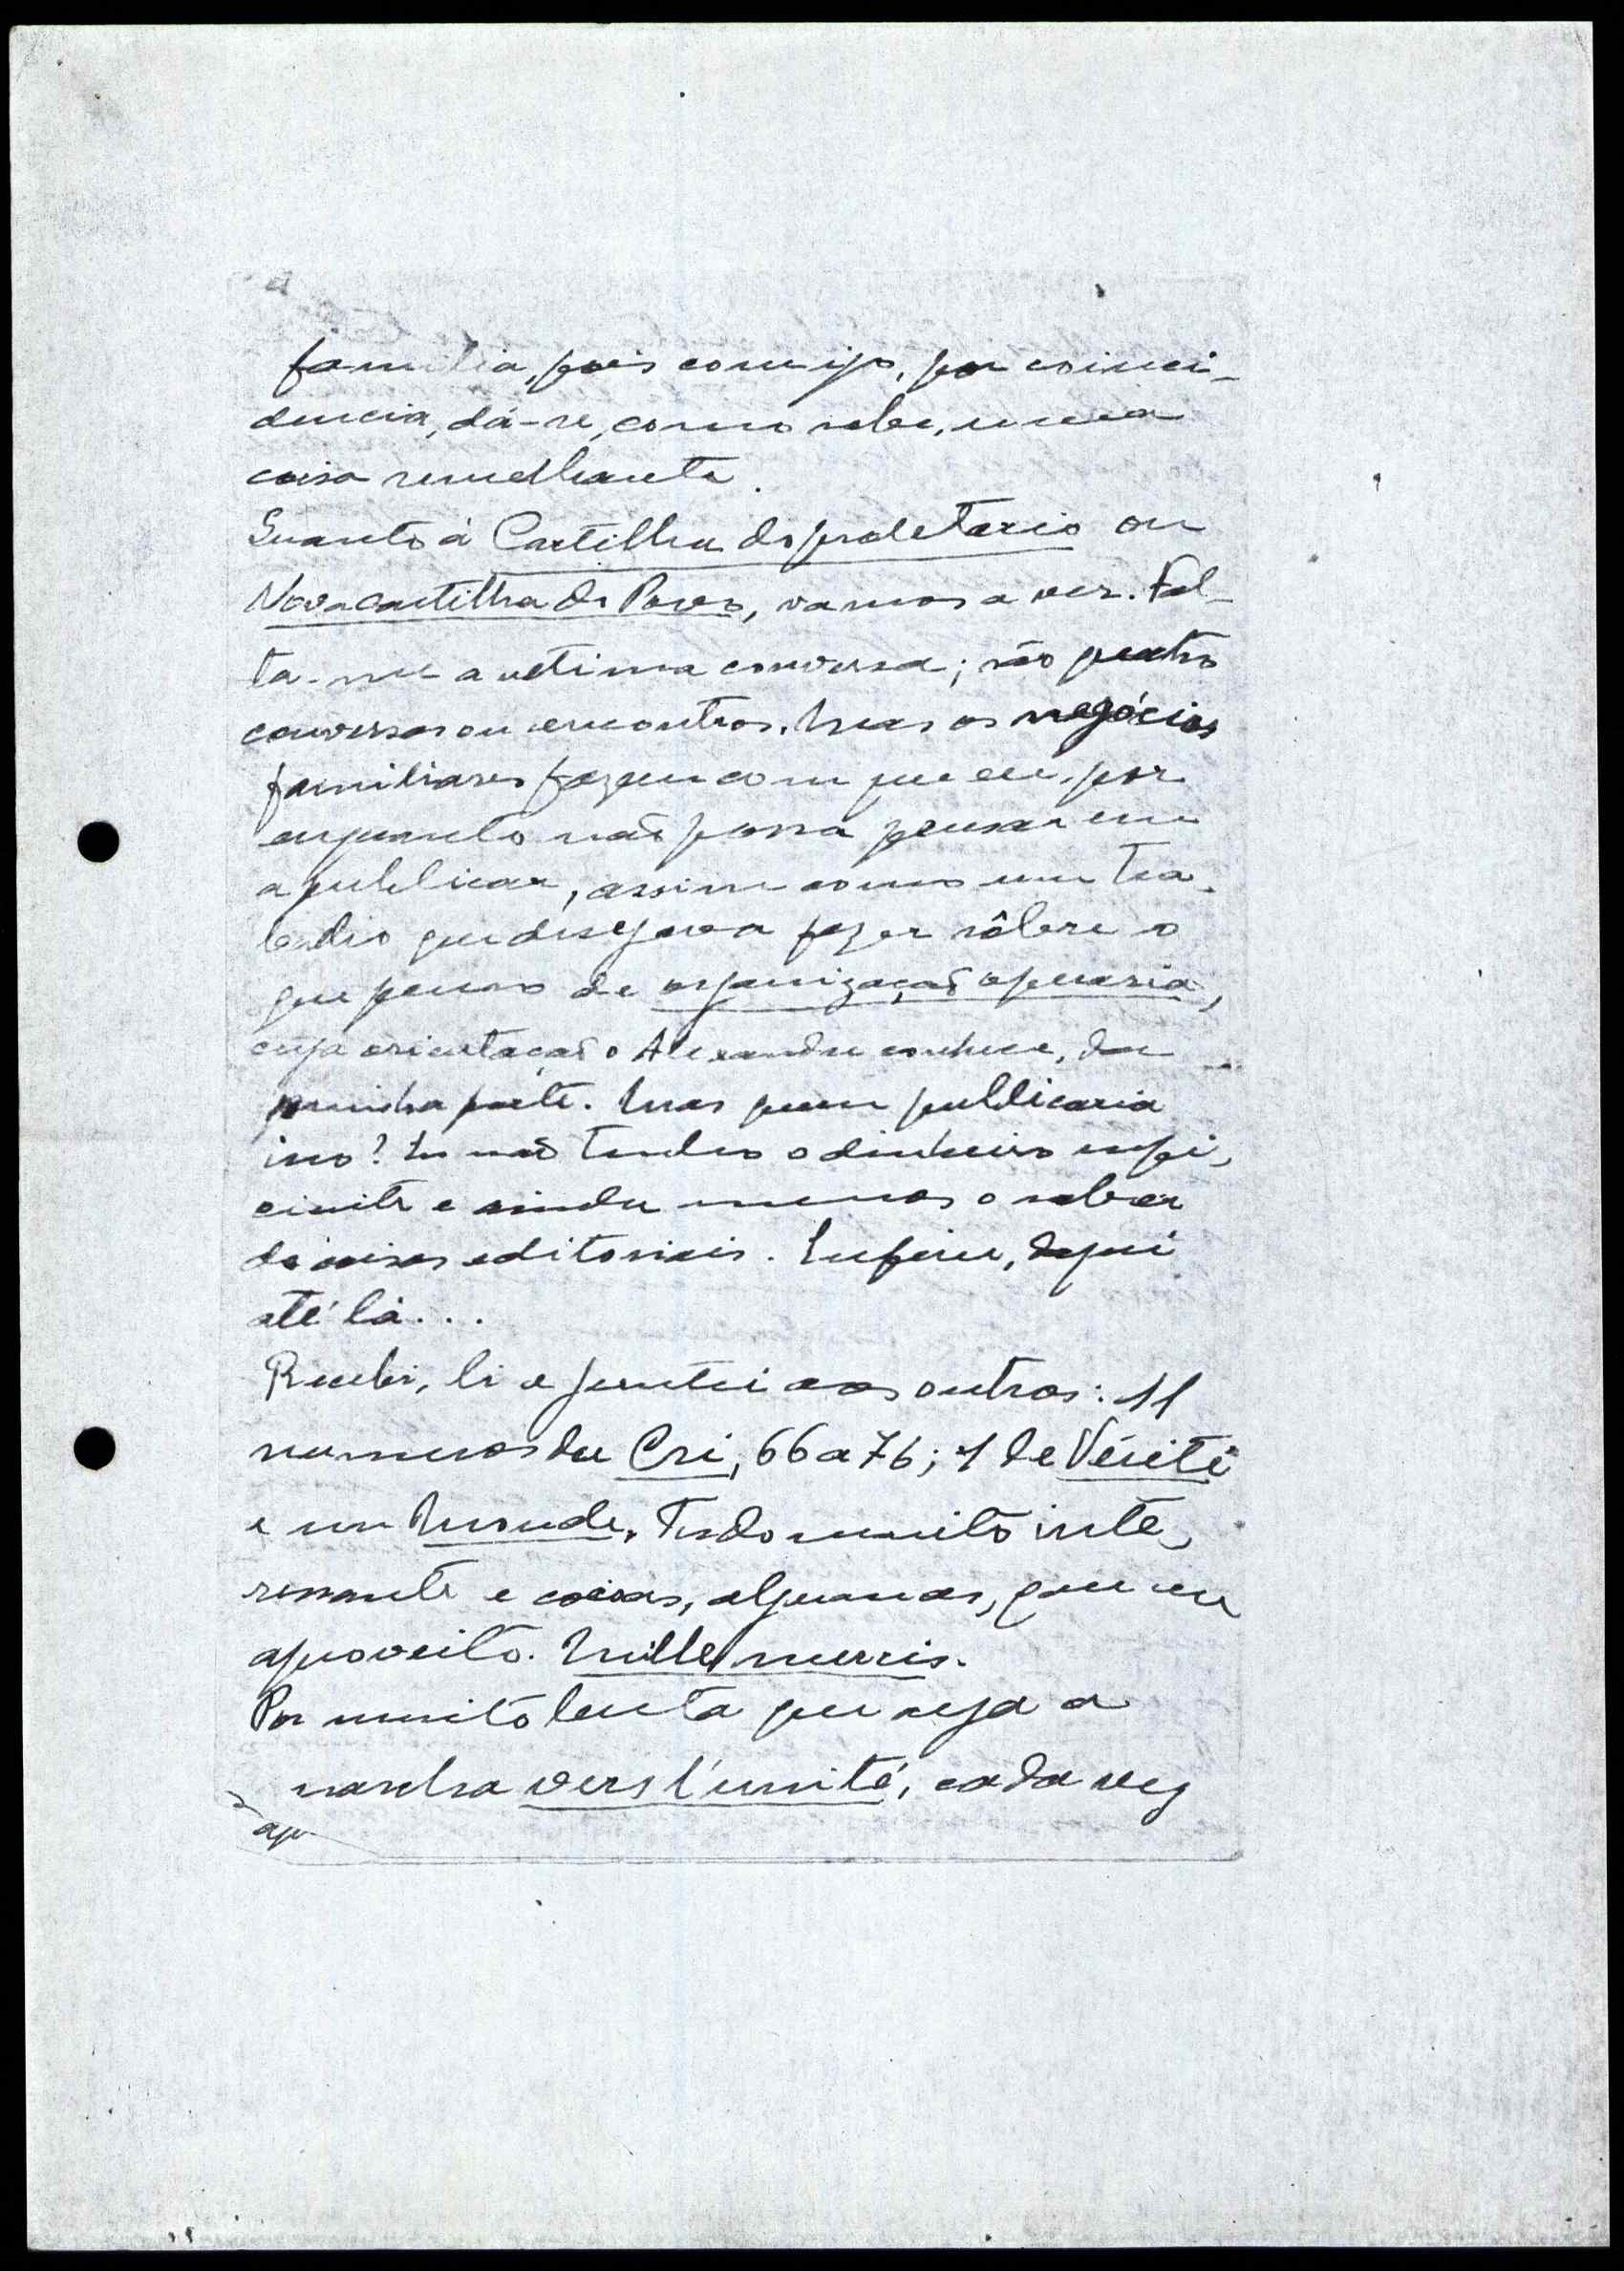 familia, pois comigo, por coinci-
dencia, dá-se, como sabe, uma
coisa semelhante.
Quanto á Cartilha do proletario ou
Nova cartilha do Povo, vamos a ver. Fal-
ta-me a ultima conversa; são quatro
conversas ou encontros. Mas os negócios
familiares fazem com que eu, por
enquanto não possa pensar em
a publicar, assim como um tra-
balho que desejava fazer sôbre o
que penso de organização operaria,
cuja orientação o Alexandre conhece, da
minha parte. Mas quem publicaria
isso? Eu não tenho o dinheiro sufi-
ciente e ainda menos o saber
de coisas editoriais. Enfim, daqui
até lá...
Recebi, li e juntei aos outros: 11
numeros du Cri, 66 a 76; 1 de Vérité
e um Monde. Tudo muito inte-
ressante e coisas, algumas, que eu
aproveito. Mille mercis.
Por muito lenta que seja a
marcha vers l'unité, cada vez